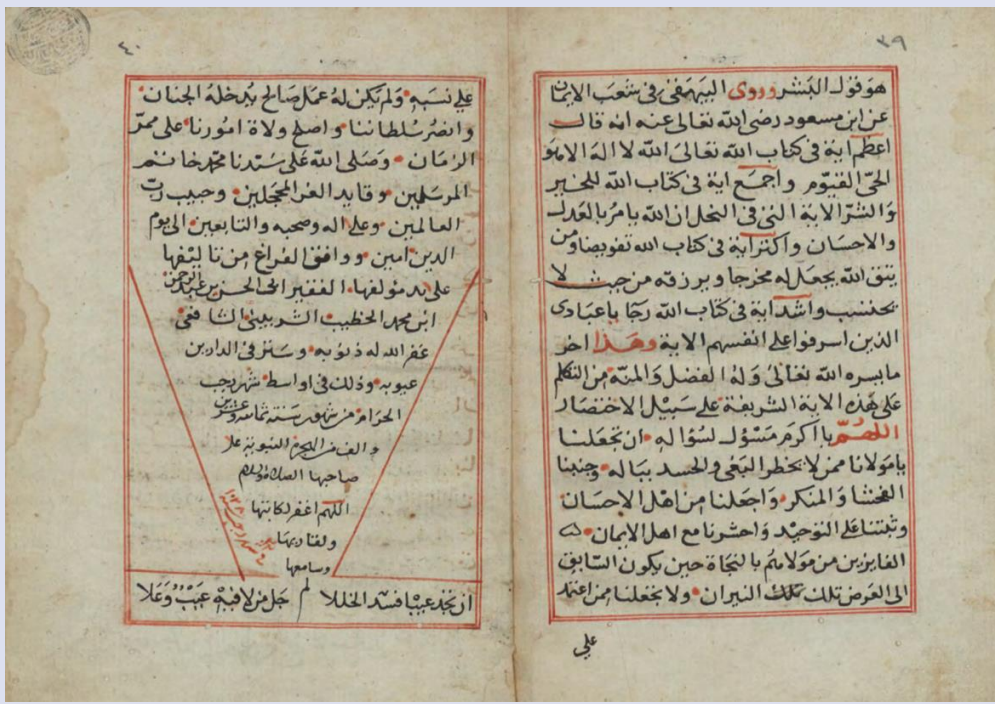 ٣٩
هو قول البشر وروى البيهقى فى شعب الايمان
عن ابن مسعود رضى الله تعالى عنه انه قال
اعظم اية فى كتاب الله تعالى الله لا اله الا هو
الحى القيوم واجمع اية فى كتاب الله للخير
والشر الاية التى فى النحل ان الله يامر بالعدل
والاحسان واكثر اية فى كتاب الله تفويضا ومن
يتق الله يجعل له مخرجا ويرزقه من حيث لا
يحتسب واشد اية فى كتاب الله رجا يا عبادى
الذين اسرفوا على انفسهم الاية وهذا اخر
ما يسره الله تعالى وله الفضل والمنة من التكلم
على هذه الاية الشريفة على سبيل الاختصار
اللهم يا اكرم مسؤل لسؤاله ان تجعلنا
يا مولانا ممن لا يخطر البغى والحسد بباله وجنبنا
الفحشا والمنكر واجعلنا من اهل الاحسان
وثبتنا على التوحيد واحشرنا مع اهل الايمان
الفايزين من مولاهم بالنجاة حين يكون السابق
الى العرض تلك تلك النيران ولا تجعلنا ممن اعتمد
على
٤٠
على نسبه ولم يكن له عمل صالح يدخله الجنان
وانصر سلطاننا واصلح ولاة امورنا على ممر
الزمان وصلى الله على سيدنا محمد خاتم
المرسلين وقايد الغر المحجلين وحبيب رب
العالمين وعلى اله وصحبه والتابعين الى يوم
الدين امين ووافق الفراغ من تاليفها
على يد مولفها الفقير الى الله عبد الرحمن
ابن محمد الخطيب الشربينى الشافعى
غفر الله له ذنوبه وستر فى الدارين
عيوبه وذلك فى اواسط شهر رجب
الحرام من شهور سنة ثمانية وعشرين
والف من الهجرة النبوية على
صاحبها الصلاة والسلام
اللهم اغفر لكاتبها
ولقاريها
وسامعها
ان تجد عيبا فسد الخللا جل من لا فيه عيب وعلا